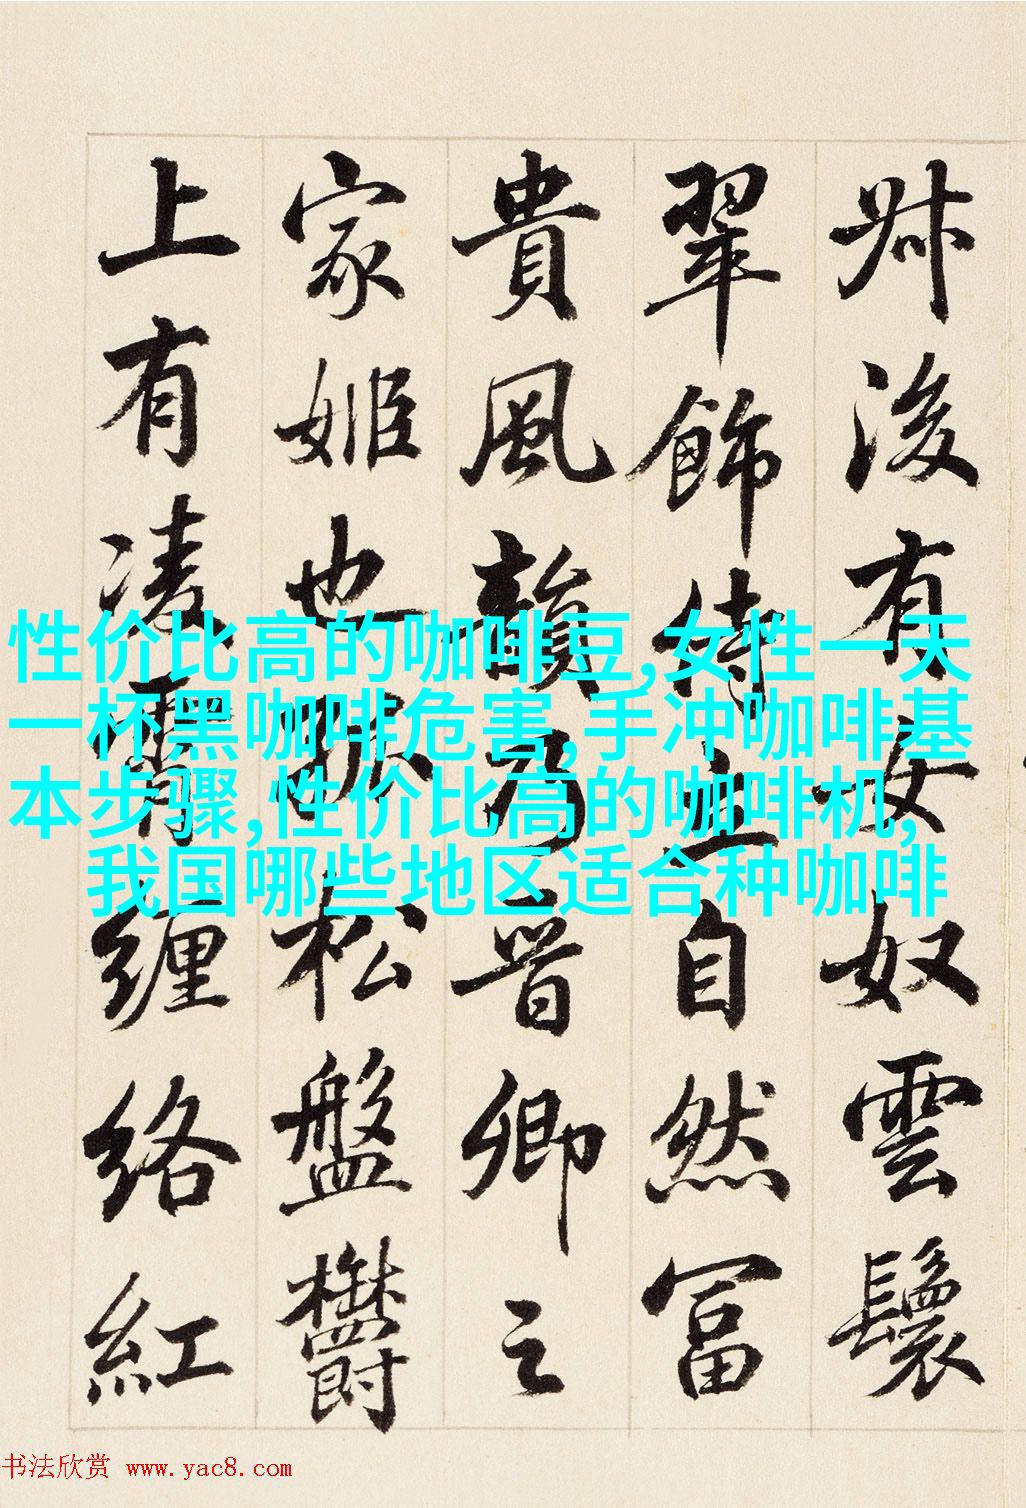 叔後有女奴雲鬟
翠飾侍立自然富
貴風韻乃晉卿之
家姬也孤松盤鬱
上有凌霄纏絡紅
性价比高的咖啡豆,女性一天
一杯黑咖啡危害,手冲咖啡基
本步骤,性价比高的咖啡机,
我国哪些地区适合种咖啡
书法欣赏 www.yac8.com